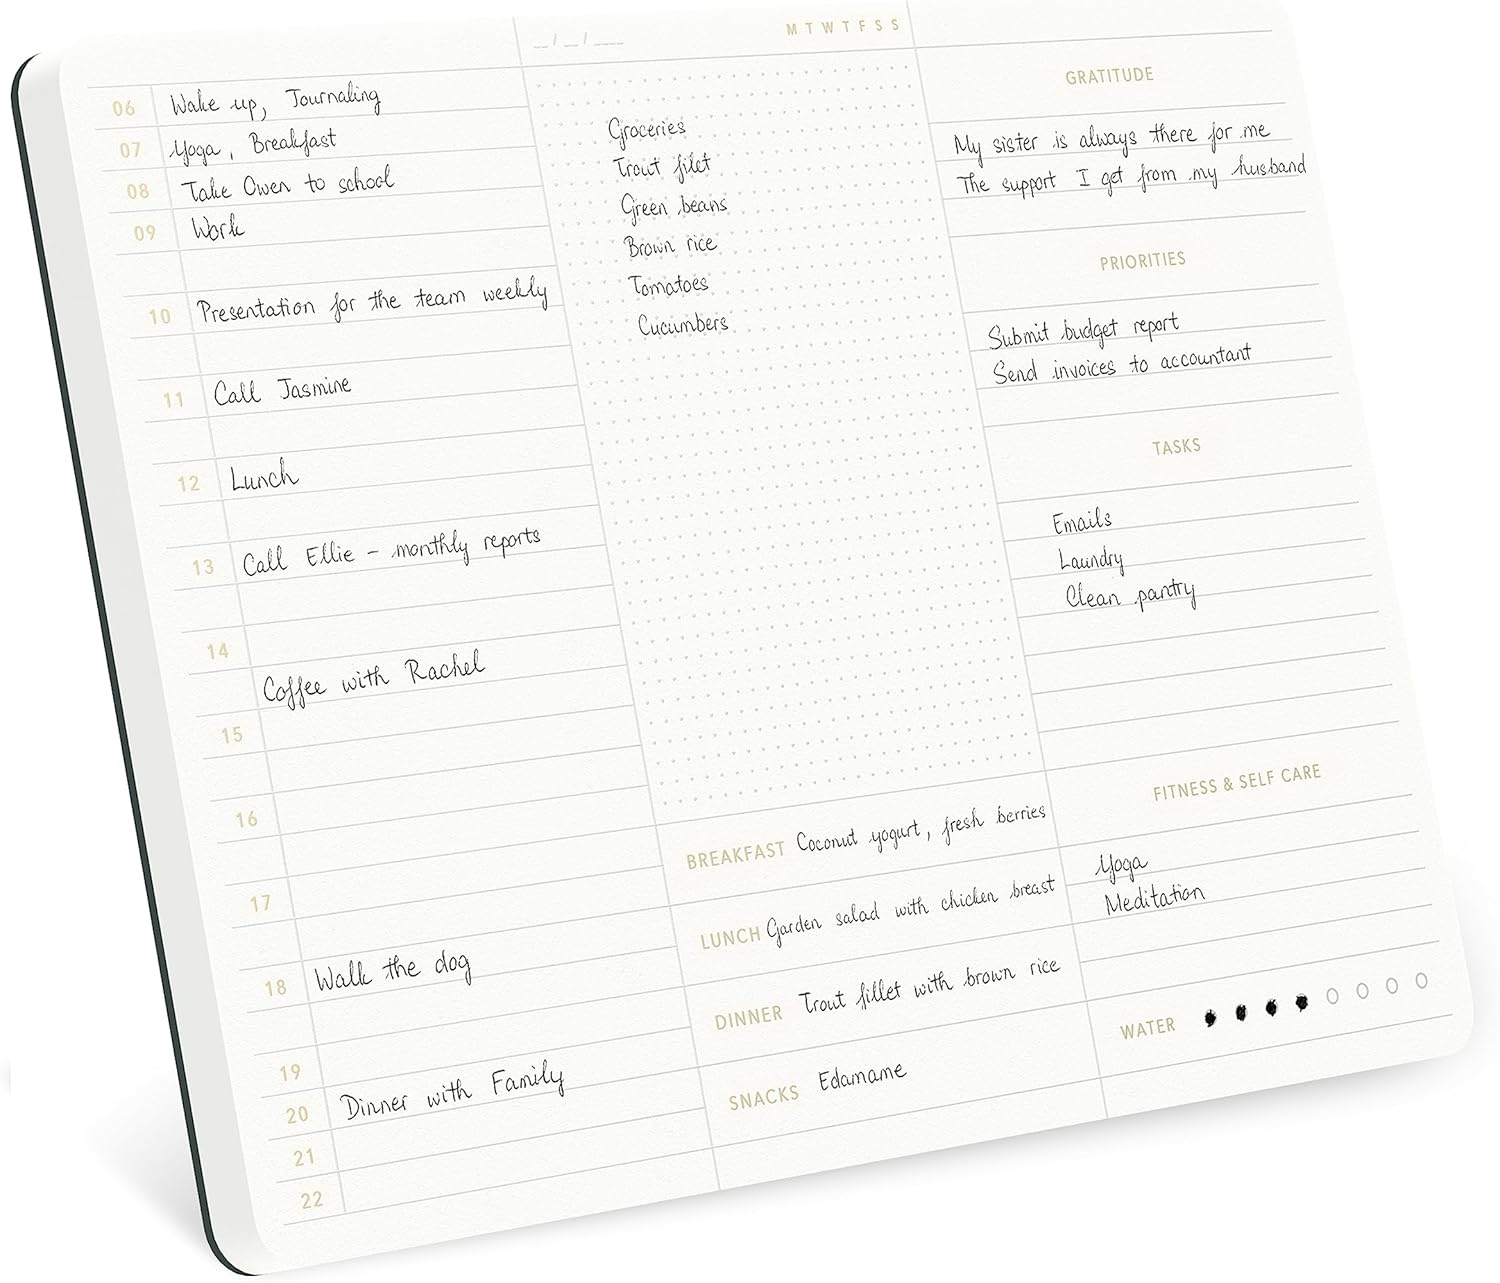 06 Wake up, Journaling
07 Yoga, Breakfast
08 Take Owen to school
09 Work
10 Presentation for the team weekly
11 Call Jasmine
12 Lunch
13 Call Ellie - monthly reports
14
Coffee with Rachel
15
16
17
18 Walk the dog
19
20 Dinner with Family
21
22
__/__/___ M T W T F S S
Groceries
Trout filet
Green beans
Brown rice
Tomatoes
Cucumbers
BREAKFAST Coconut yogurt, fresh berries
LUNCH Garden salad with chicken breast
DINNER Trout fillet with brown rice
SNACKS Edamame
GRATITUDE
My sister is always there for me
The support I get from my husband
PRIORITIES
Submit budget report
Send invoices to accountant
TASKS
Emails
Laundry
Clean pantry
FITNESS & SELF CARE
Yoga
Meditation
WATER